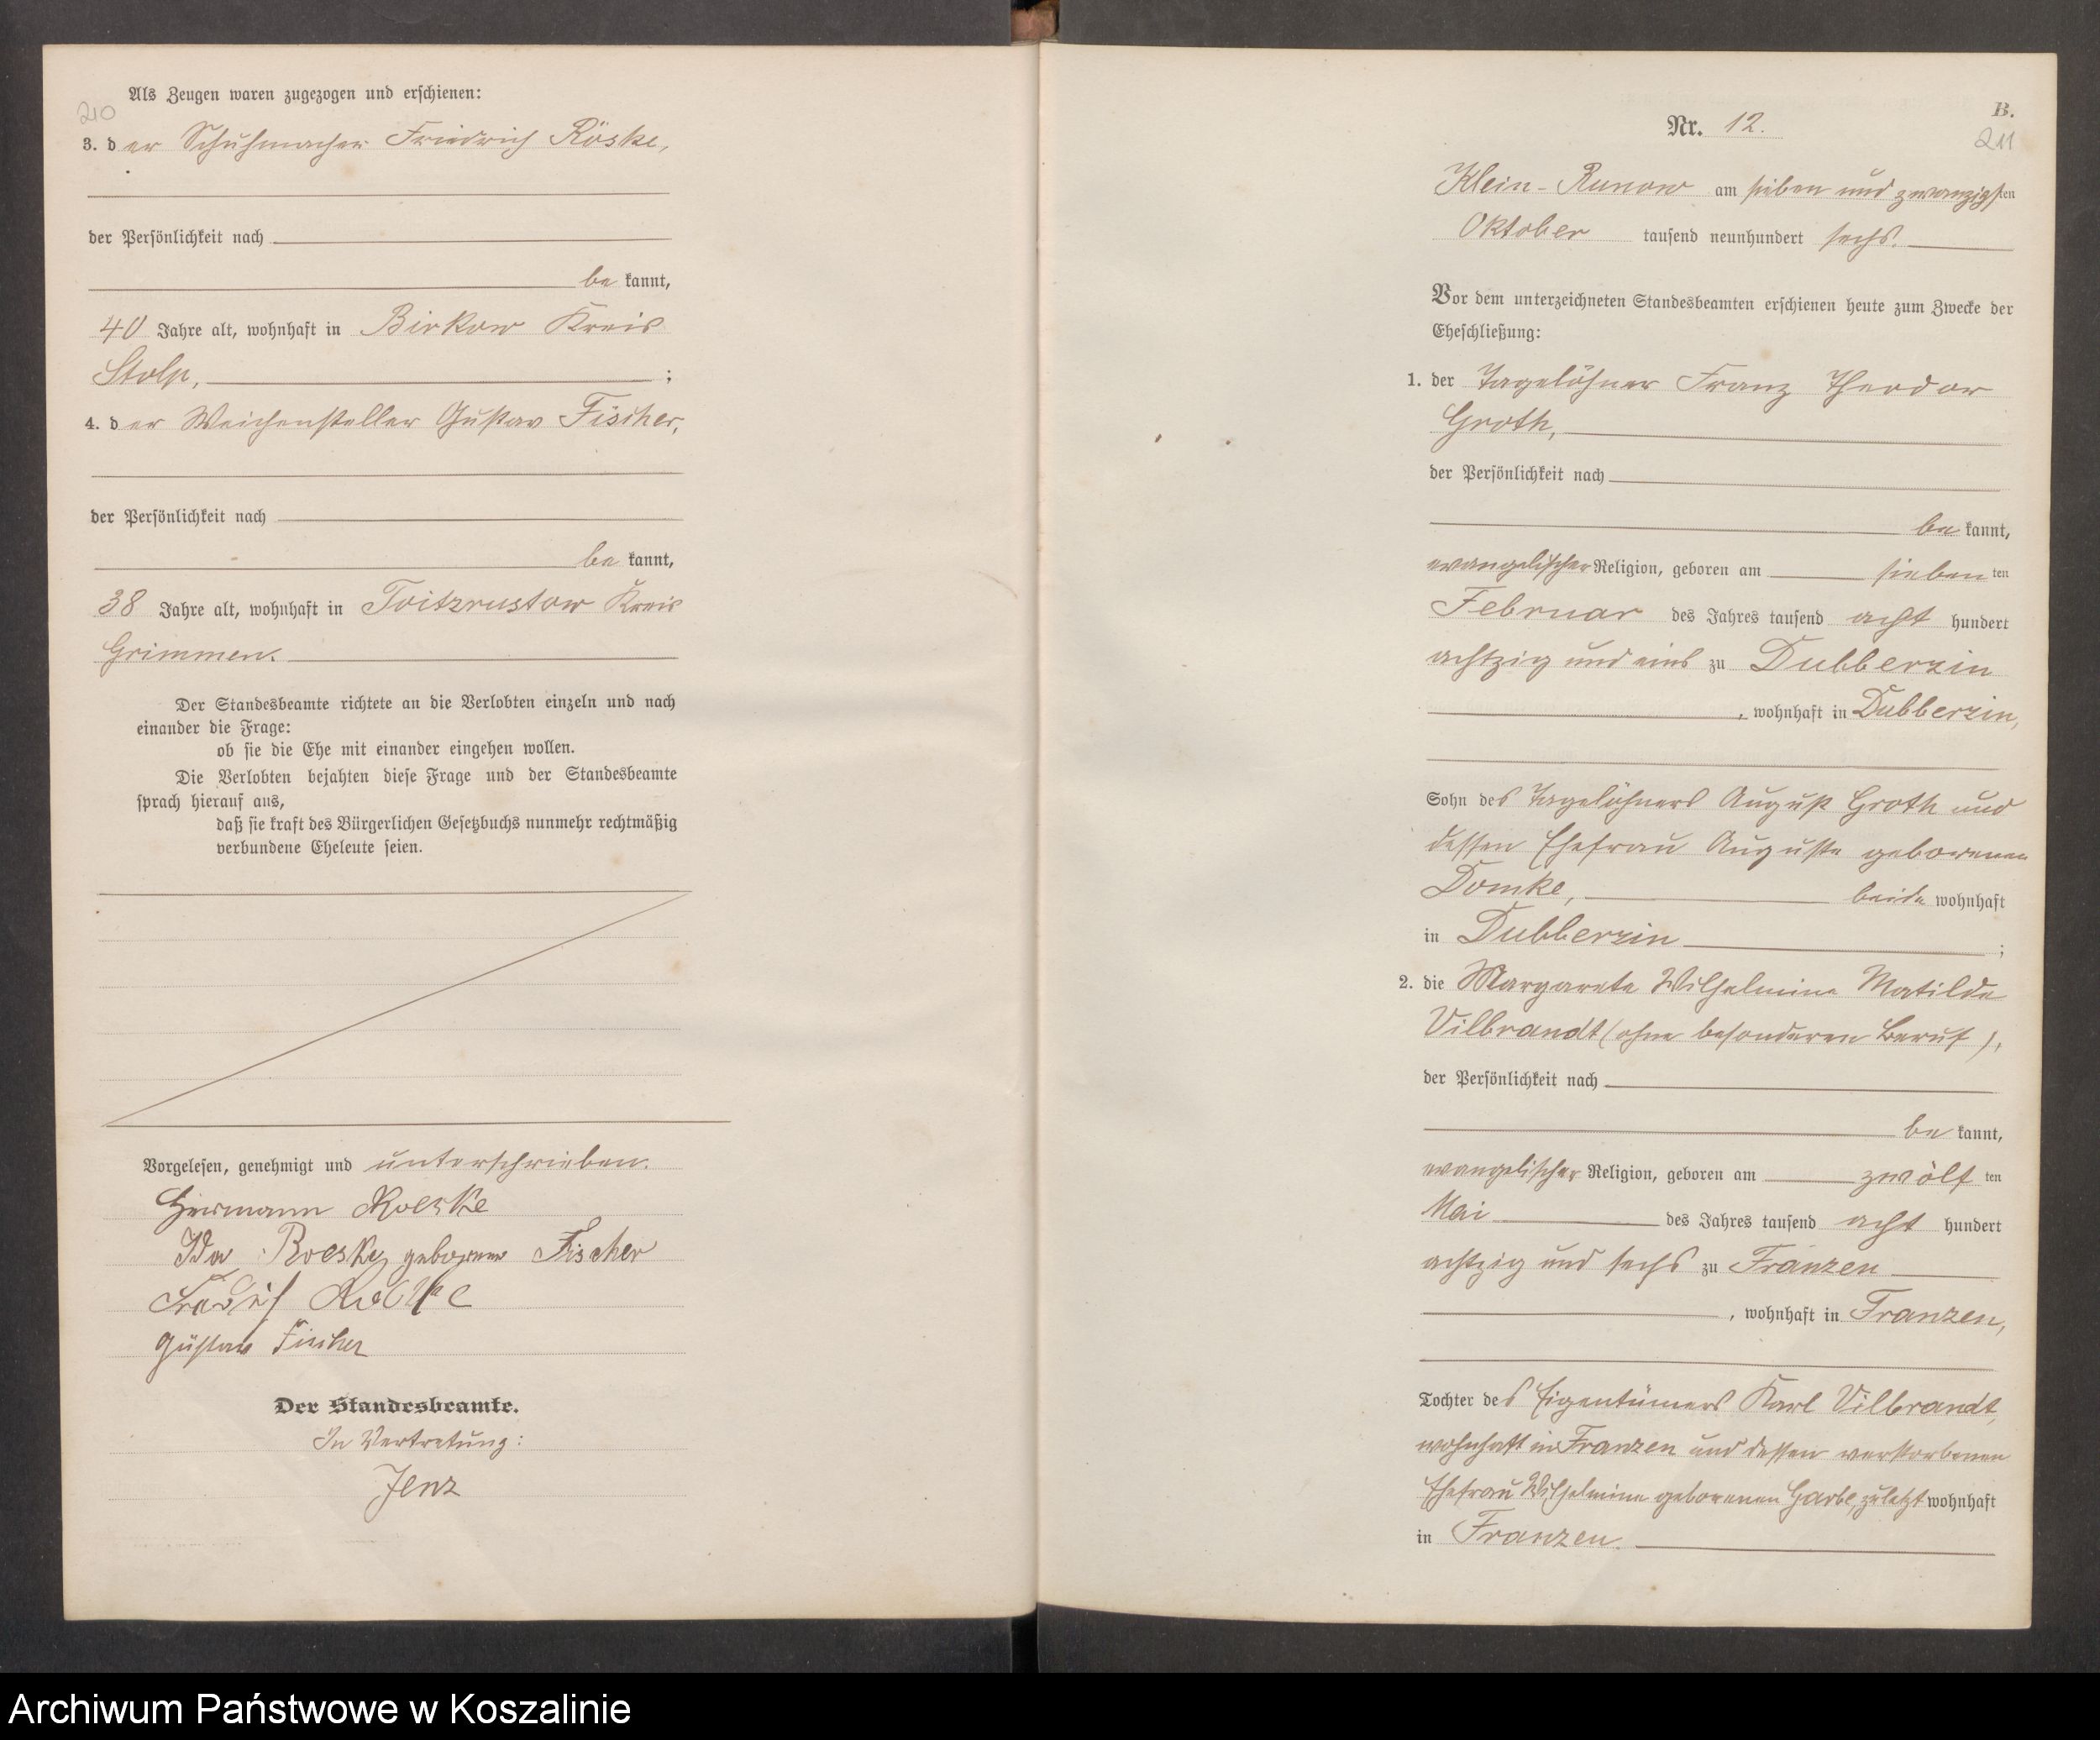 210
Als Zeugen waren zugezogen und erschienen:
3. der Schuhmacher Friedrich Röske,
der Persönlichkeit nach
be kannt,
40 Jahre alt, wohnhaft in Birkow Kreis
Stolp, ;
4. der Weichensteller Gustav Fischer,
der Persönlichkeit nach
be kannt,
38 Jahre alt, wohnhaft in Toitzrustow Kreis
Grimmen.
Der Standesbeamte richtete an die Verlobten einzeln und nach
einander die Frage:
ob sie die Ehe mit einander eingehen wollen.
Die Verlobten bejahten diese Frage und der Standesbeamte
sprach hierauf aus,
daß sie kraft des Bürgerlichen Gesetzbuchs nunmehr rechtmäßig
verbundene Eheleute seien.
Vorgelesen, genehmigt und unterschrieben.
Hermann Roeske
Ida Roeske geborene Fischer
Roeske
Gustav Fischer
Der Standesbeamte.
In Vertretung:
Jenz
B.
211
Nr. 12.
Klein-Runow am sieben und zwanzigsten
Oktober tausend neunhundert sechs.
Vor dem unterzeichneten Standesbeamten erschienen heute zum Zwecke der
Eheschließung:
1. der Tagelöhner Franz Theodor
Groth,
der Persönlichkeit nach
be kannt,
evangelischer Religion, geboren am sieben ten
Februar des Jahres tausend acht hundert
achtzig und eins zu Dubberzin
, wohnhaft in Dubberzin,
Sohn des Tagelöhners August Groth und
dessen Ehefrau Auguste geborenen
Domke, beide wohnhaft
in Dubberzin ;
2. die Margarete Wilhelmine Matilde
Vilbrandt (ohne besonderen Beruf),
der Persönlichkeit nach
be kannt,
evangelischer Religion, geboren am zwölf ten
Mai des Jahres tausend acht hundert
achtzig und sechs zu Franzen
, wohnhaft in Franzen,
Tochter des Eigentümers Karl Vilbrandt,
wohnhaft in Franzen und dessen verstorbenen
Ehefrau Wilhelmine geborenen Garbe, zuletzt wohnhaft
in Franzen.
Archiwum Państwowe w Koszalinie